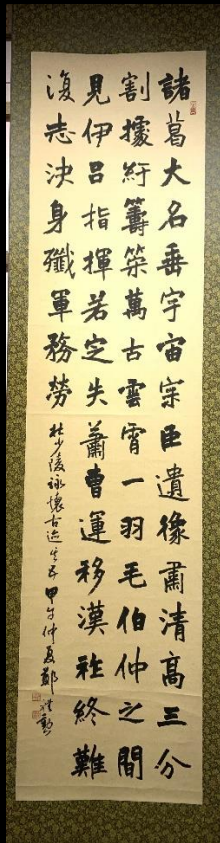 諸葛大名垂宇宙宗臣遺像肅清高三分
割據紆籌策萬古雲霄一羽毛伯仲之間
見伊呂指揮若定失蕭曹運移漢祚終難
復志決身殲軍務勞 杜少陵詠懷古迹其五 甲午仲夏 鄭